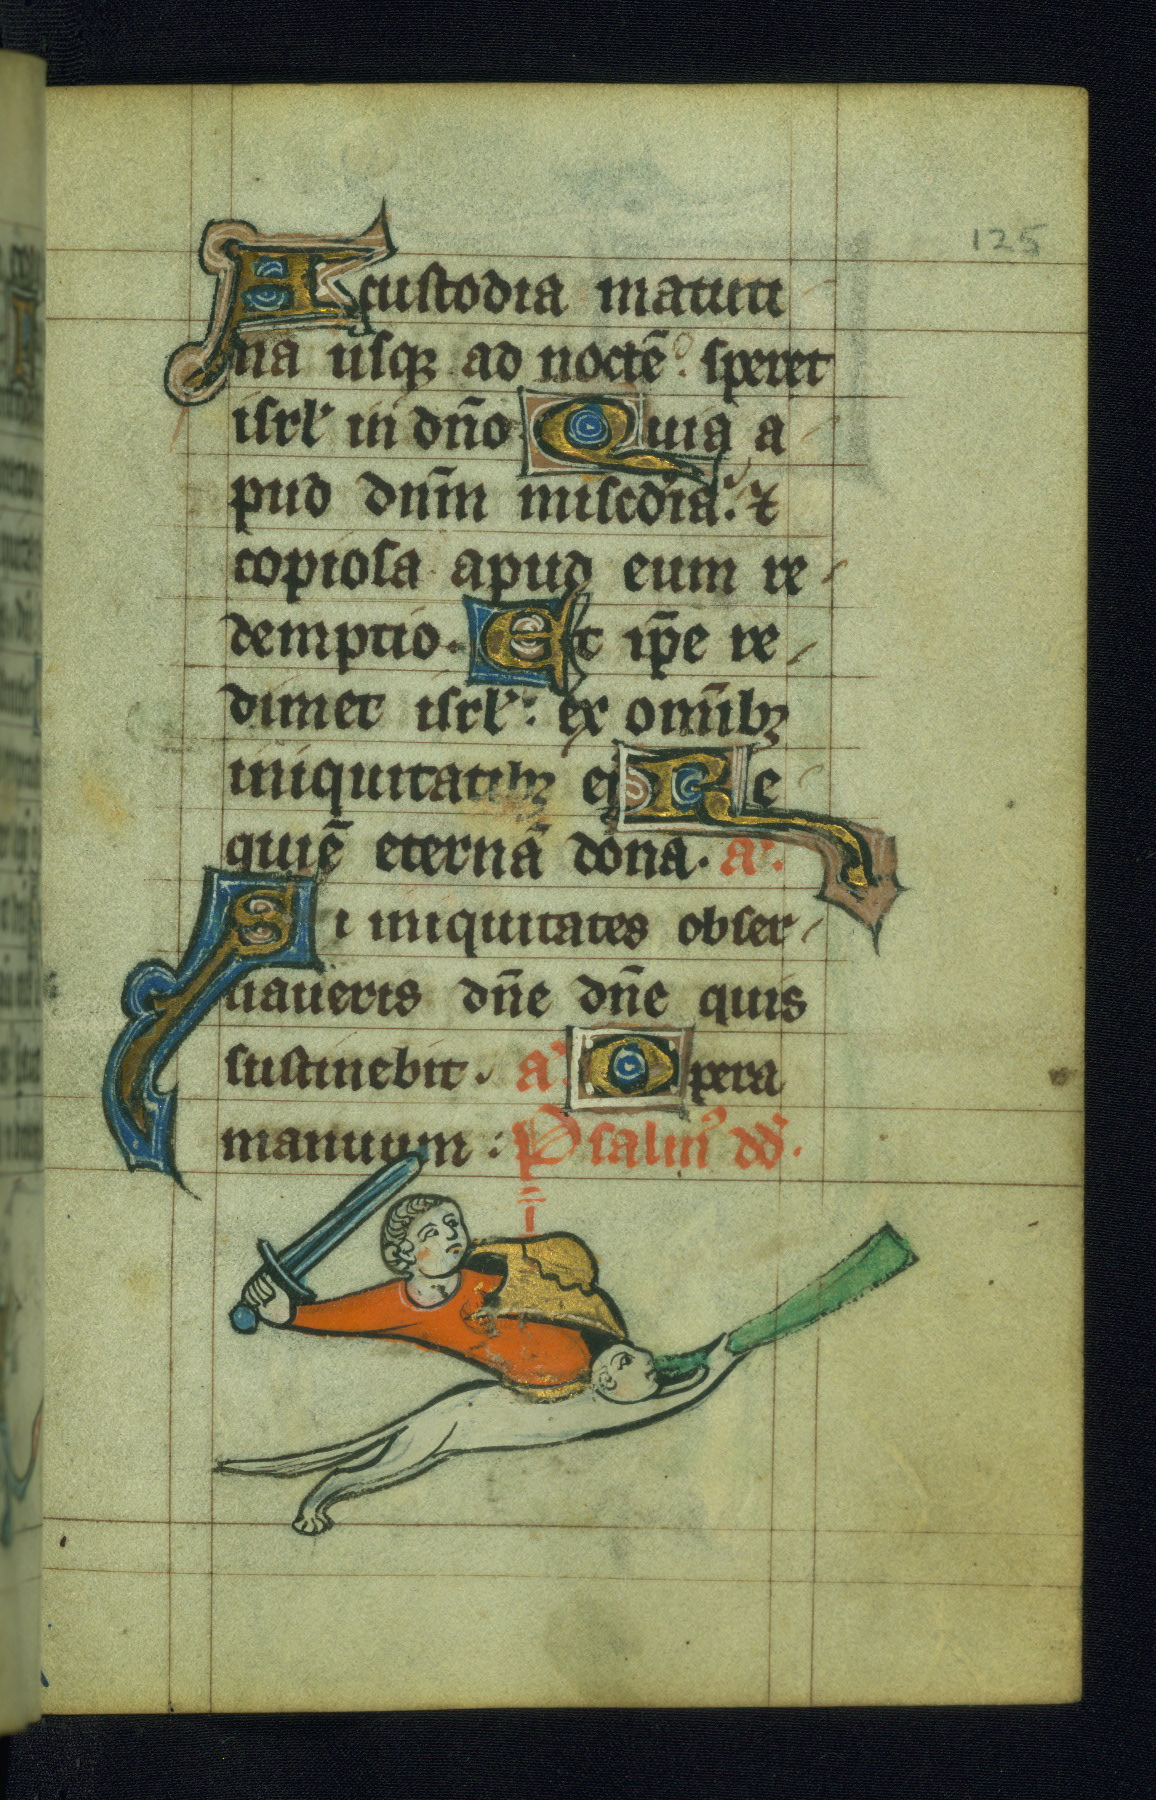 125
A custodia matuti
na usqꝫ ad noctē. speret
isrl̛ in dn̄o Quia a
pud dnm̄ misc̄dia: ⁊
copiosa apud eum re
demptio. Et ip̄e re
dimet isrl̛: ex omībꝫ
iniquitatibꝫ ej Re
quiē eternā dona. a᷑:
Si iniquitates obser
uaueris dn̄e dn̄e quis
sustinebit. a᷑: Opera
manuum: Psalm᷒ dd̄.